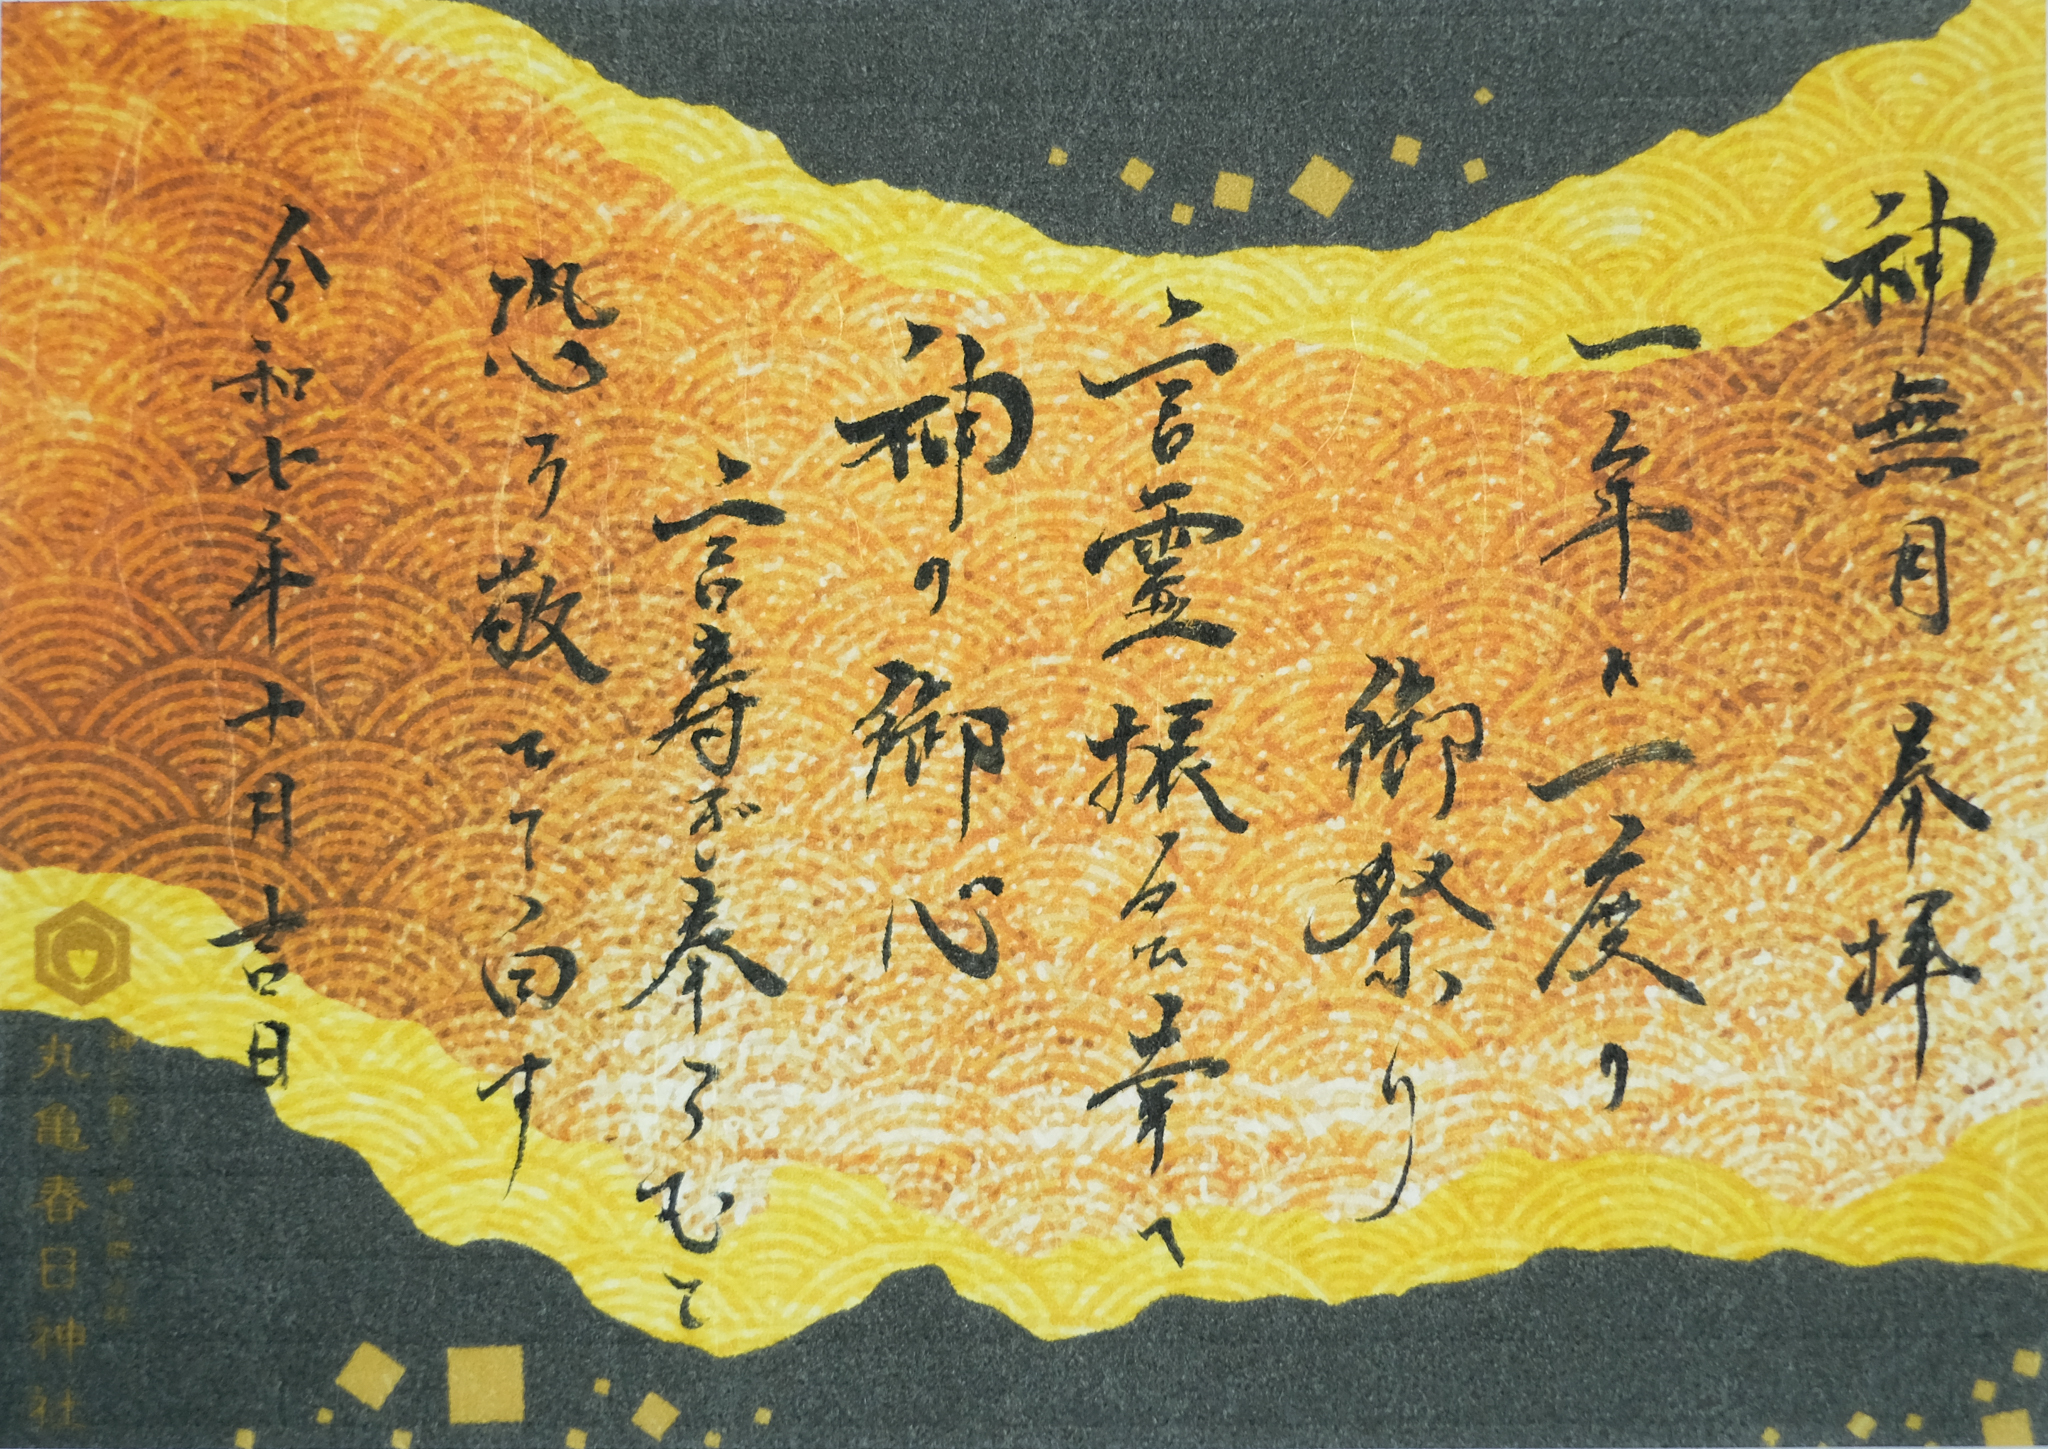 神無月 奉拝
一年に一度の
御祭り
言霊振るひ幸へ
神の御心
言寿ぎ奉らむと
恐み敬ひて白す
令和七年十月吉日
丸亀春日神社